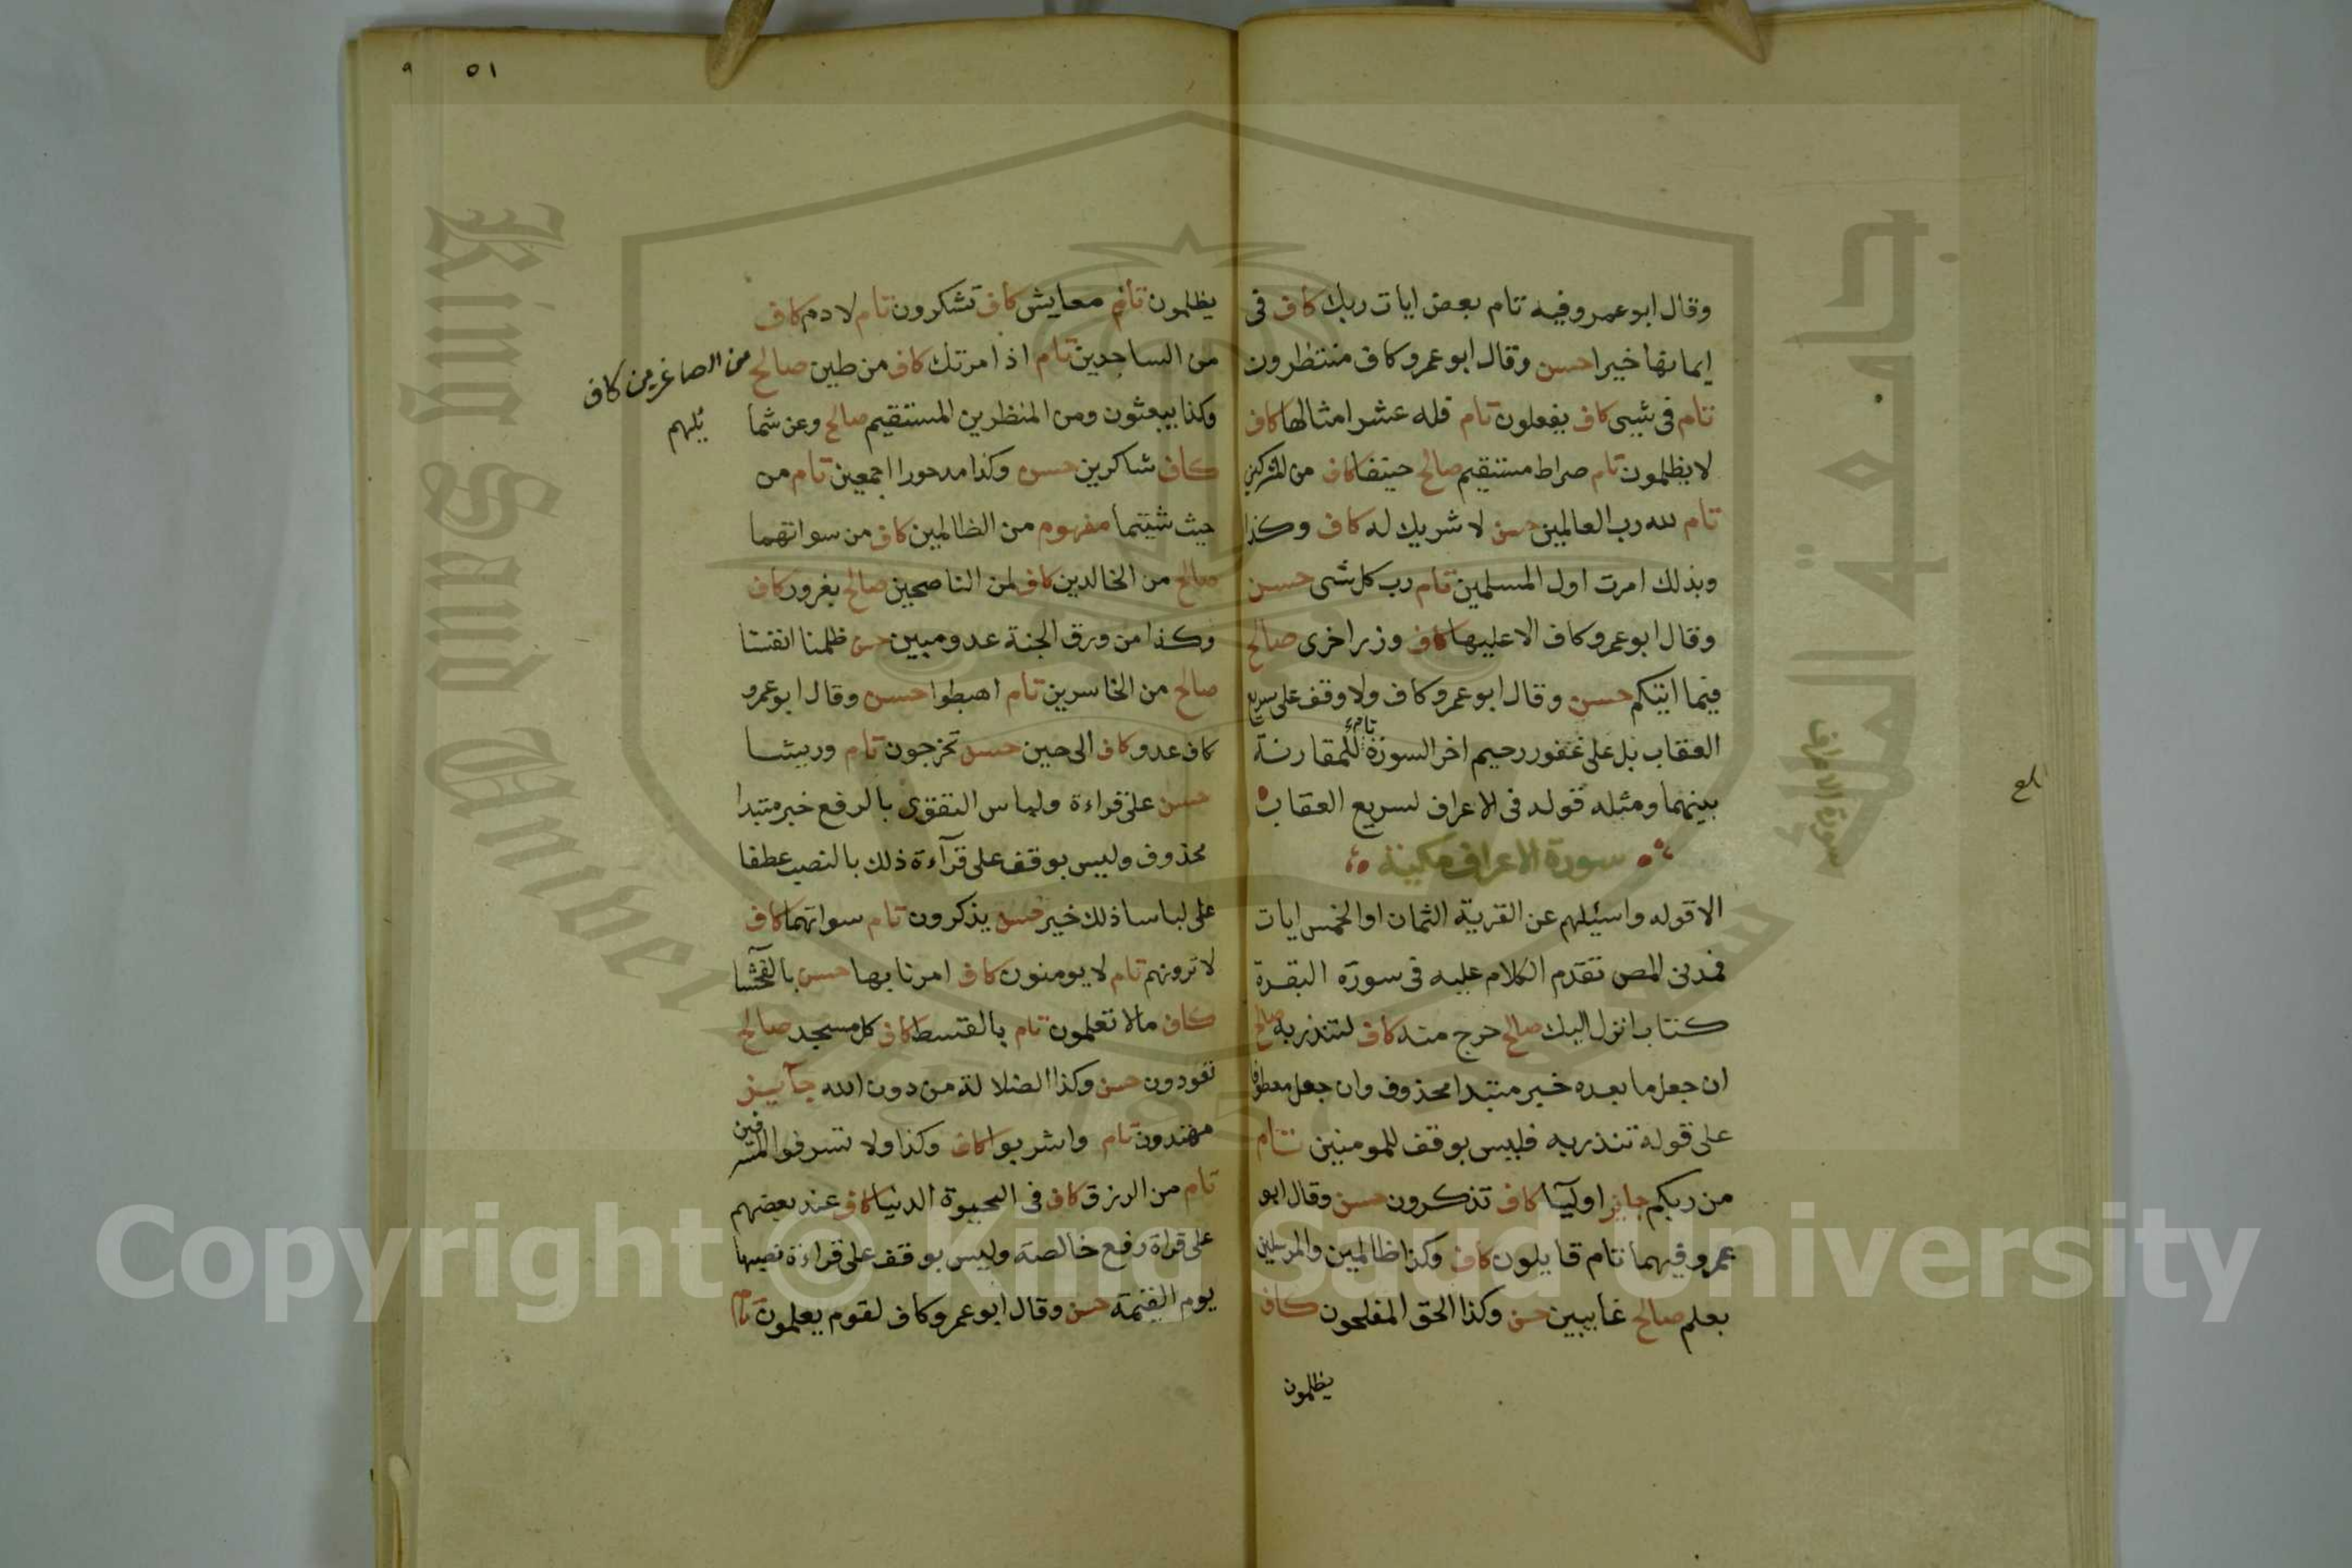 وقال ابو عمرو فيه تام بعض ايات ربك كاف فى
ايمانها خيرا حسن وقال ابو عمرو كاف منتظرون
تام فى شيى كاف يفعلون تام فله عشر امثالها كاف
لا يظلمون تام صراط مستقيم صالح حنيفا كاف من المشركين
تام لله رب العالمين حسن لا شريك له كاف وكذا
وبذلك امرت اول المسلمين تام رب كل شى حسن
وقال ابو عمرو كاف الا عليها كاف وزر اخرى صالح
فيما اتيكم حسن وقال ابو عمرو كاف ولا وقف على سريع
العقاب بل على غفور رحيم اخر السورة تام للمقارنة
بينهما ومثله قوله فى الاعراف لسريع العقاب
سورة الاعراف مكية
الا قوله واسيلهم عن القرية الثمان او الخمس ايات
فمدنى المص تقدم الكلام عليه فى سورة البقرة
كتاب انزل اليك صالح حرج منه كاف لتنذر به صالح
ان جعل ما بعده خبر مبتدا محذوف وان جعل معطوفا
على قوله تنذر به فليس بوقف للمومنين تام
من ربكم جايز اوليآ كاف تذكرون حسن وقال ابو
عمرو فيهما تام قايلون كاف وكذا ظالمين والمرسلين
بعلم صالح غايبين حسن وكذا الحق المفلحون كاف
يظلمون
سورة الاعراف
٥١ ٩
يظلمون تام معايش كاف تشكرون تام لادم كاف
من الساجدين تام اذ امرتك كاف من طين صالح
من الصاغرين كاف
وكذا يبعثون ومن المنظرين المستقيم صالح وعن شما
يلهم
كاف شاكرين حسن وكذا مدحورا اجمعين تام من
حيث شيتما مفهوم من الظالمين كاف من سواتهما
صالح من الخالدين كاف لمن الناصحين صالح بغرور كاف
وكذا من ورق الجنة عدو مبين حسن ظلمنا انفسنا
صالح من الخاسرين تام اهبطوا حسن وقال ابو عمرو
كاف عدو كاف الى حين حسن تخرجون تام وريشا
حسن على قراءة ولباس التقوى بالرفع خبر مبتدا
محذوف وليس بوقف على قرآءة ذلك بالنصب عطفا
على لباسا ذلك خير حسن يذكرون تام سواتهما كاف
لا ترونهم تام لا يومنون كاف امرنا بها حسن بالفحشآ
كاف مالا تعلمون تام بالقسط كاف كل مسجد صالح
تعودون حسن وكذا الضلالة من دون الله جآيز
مهتدون تام واشربوا كاف وكذا ولا تسرفوا المسرفين
تام من الرزق كاف فى الحيوة الدنيا كاف عند بعضهم
على قراة رفع خالصة وليس بوقف على قراءة نصبها
يوم القيمة حسن وقال ابو عمرو كاف لقوم يعلمون تام
King Saud University
جامعة الملك سعود
1957
Copyright © King Saud University